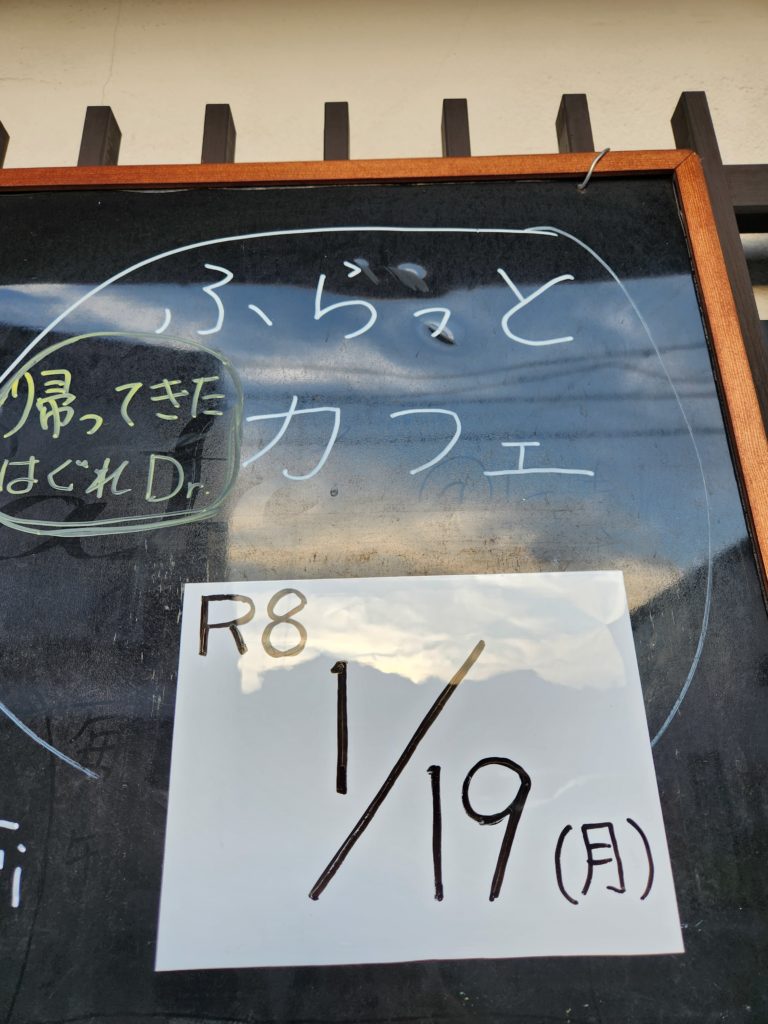 ふらっと
カフェ
帰ってきた
はぐれDr.
R8
1/19(月)